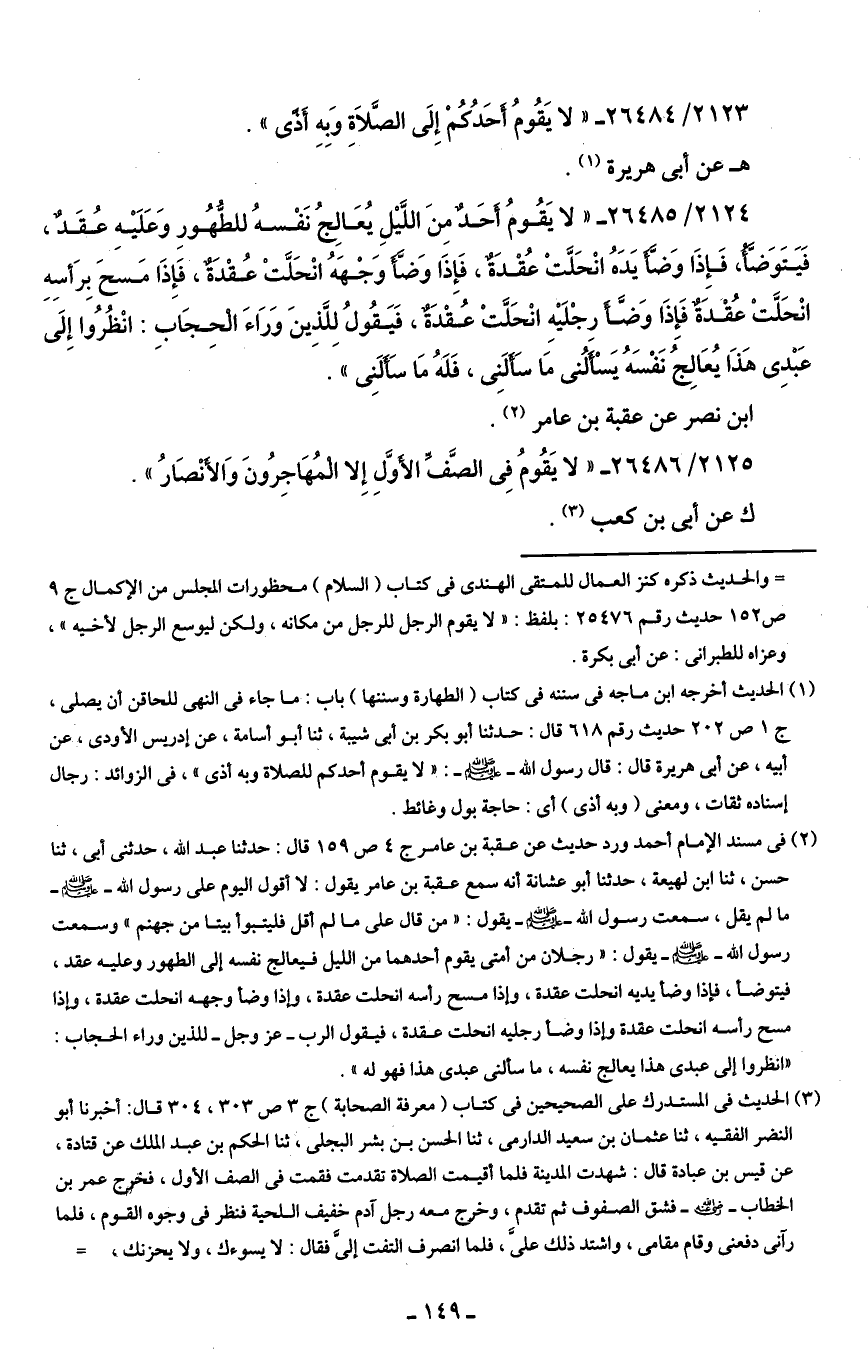 ٢١٢٣/ ٢٦٤٨٤ـ « لا يَقُومُ أَحَدُكُمْ إِلَى الصَّلاَةِ وَبِهِ أَذًى » .
هـ عن أبى هريرة (١) .
٢١٢٤/ ٢٦٤٨٥ـ « لا يَقُومُ أَحَدٌ مِنَ اللَّيْلِ يُعَالِجُ نَفْسَهُ للطُّهُورِ وَعَلَيْهِ عُقَدٌ ،
فَيَتَوَضَّأُ، فَإِذَا وَضَّأَ يَدَهُ انْحَلَّتْ عُقْدَةٌ ، فَإِذَا وَضَّأَ وَجْهَهُ انْحَلَّتْ عُقْدَةٌ ، فَإِذَا مَسحَ بِرَأسِهِ
انْحَلَّتْ عُقْدَةٌ فَإِذَا وَضَّأَ رِجْلَيْهِ انْحَلَّتْ عُقْدَةٌ ، فَيَقُولُ لِلَّذِينَ وَرَاءَ الْحِجَابِ : انْظُرُوا إِلَى
عَبْدِى هَذَا يُعَالِجُ نَفْسَهُ يَسْأَلُنى مَا سَأَلَنِى ، فَلَهُ مَا سَأَلَنِى » .
ابن نصر عن عقبة بن عامر (٢) .
٢١٢٥/ ٢٦٤٨٦ـ « لا يَقُومُ فِى الصَّفِّ الأَوَّلِ إِلا المُهَاجِرُونَ وَالأَنْصَارُ » .
ك عن أبى بن كعب (٣) .
= والحديث ذكره كنز العمال للمتقى الهندى فى كتاب ( السلام ) محظورات المجلس من الإكمال ج ٩
ص١٥٢ حديث رقم ٢٥٤٧٦ : بلفظ : « لا يقوم الرجل للرجل من مكانه ، ولكن ليوسع الرجل لأخيه » ،
وعزاه للطبرانى : عن أبى بكرة .
(١) الحديث أخرجه ابن ماجه فى سننه فى كتاب ( الطهارة وسننها ) باب : ما جاء فى النهى للحاقن أن يصلى ،
ج ١ ص ٢٠٢ حديث رقم ٦١٨ قال : حدثنا أبو بكر بن أبى شيبة ، ثنا أبو أسامة ، عن إدريس الأودى ، عن
أبيه ، عن أبى هريرة قال : قال رسول الله ـ ﷺ ـ : « لا يقوم أحدكم للصلاة وبه أذى » ، فى الزوائد : رجال
إسناده ثقات ، ومعنى ( وبه أذى ) أى : حاجة بول وغائط .
(٢) فى مسند الإمام أحمد ورد حديث عن عقبة بن عامر ج ٤ ص ١٥٩ قال : حدثنا عبد الله ، حدثنى أبى ، ثنا
حسن ، ثنا ابن لهيعة ، حدثنا أبو عشانة أنه سمع عقبة بن عامر يقول : لا أقول اليوم على رسول الله ـ ﷺ ـ
ما لم يقل ، سمعت رسول الله ـ ﷺ ـ يقول : « من قال على ما لم أقل فليتبوأ بيتا من جهنم » وسمعت
رسول الله ـ ﷺ ـ يقول : « رجلان من أمتى يقوم أحدهما من الليل فيعالج نفسه إلى الطهور وعليه عقد ،
فيتوضأ ، فإذا وضأ يديه انحلت عقدة ، وإذا مسح رأسه انحلت عقدة ، وإذا وضأ وجهه انحلت عقدة ، وإذا
مسح رأسه انحلت عقدة وإذا وضأ رجليه انحلت عقدة ، فيقول الرب ـ عز وجل ـ للذين وراء الحجاب :
«انظروا إلى عبدى هذا يعالج نفسه ، ما سألنى عبدى هذا فهو له » .
(٣) الحديث فى المستدرك على الصحيحين فى كتاب ( معرفة الصحابة ) ج ٣ ص ٣٠٣ ، ٣٠٤ قال: أخبرنا أبو
النضر الفقيه ، ثنا عثمان بن سعيد الدارمى ، ثنا الحسن بن بشر البجلى ، ثنا الحكم بن عبد الملك عن قتادة ،
عن قيس بن عبادة قال : شهدت المدينة فلما أقيمت الصلاة تقدمت فقمت فى الصف الأول ، فخرج عمر بن
الخطاب ـ رضي الله عنه ـ فشق الصفوف ثم تقدم ، وخرج معه رجل آدم خفيف اللحية فنظر فى وجوه القوم ، فلما
رآنى دفعنى وقام مقامى ، واشتد ذلك علىَّ ، فلما انصرف التفت إلىَّ فقال : لا يسوءك ، ولا يحزنك ، =
ـ ١٤٩ ـ